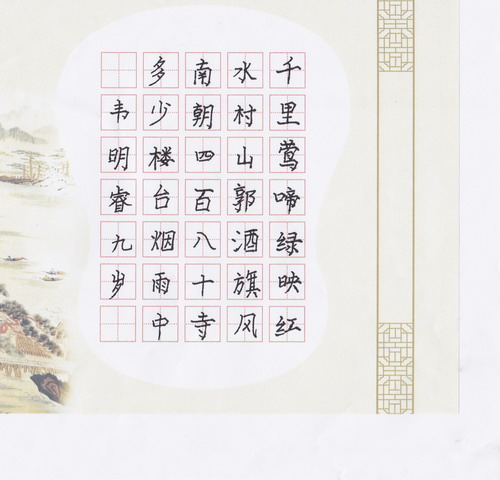 千里莺啼绿映红
水村山郭酒旗风
南朝四百八十寺
多少楼台烟雨中
韦明睿九岁